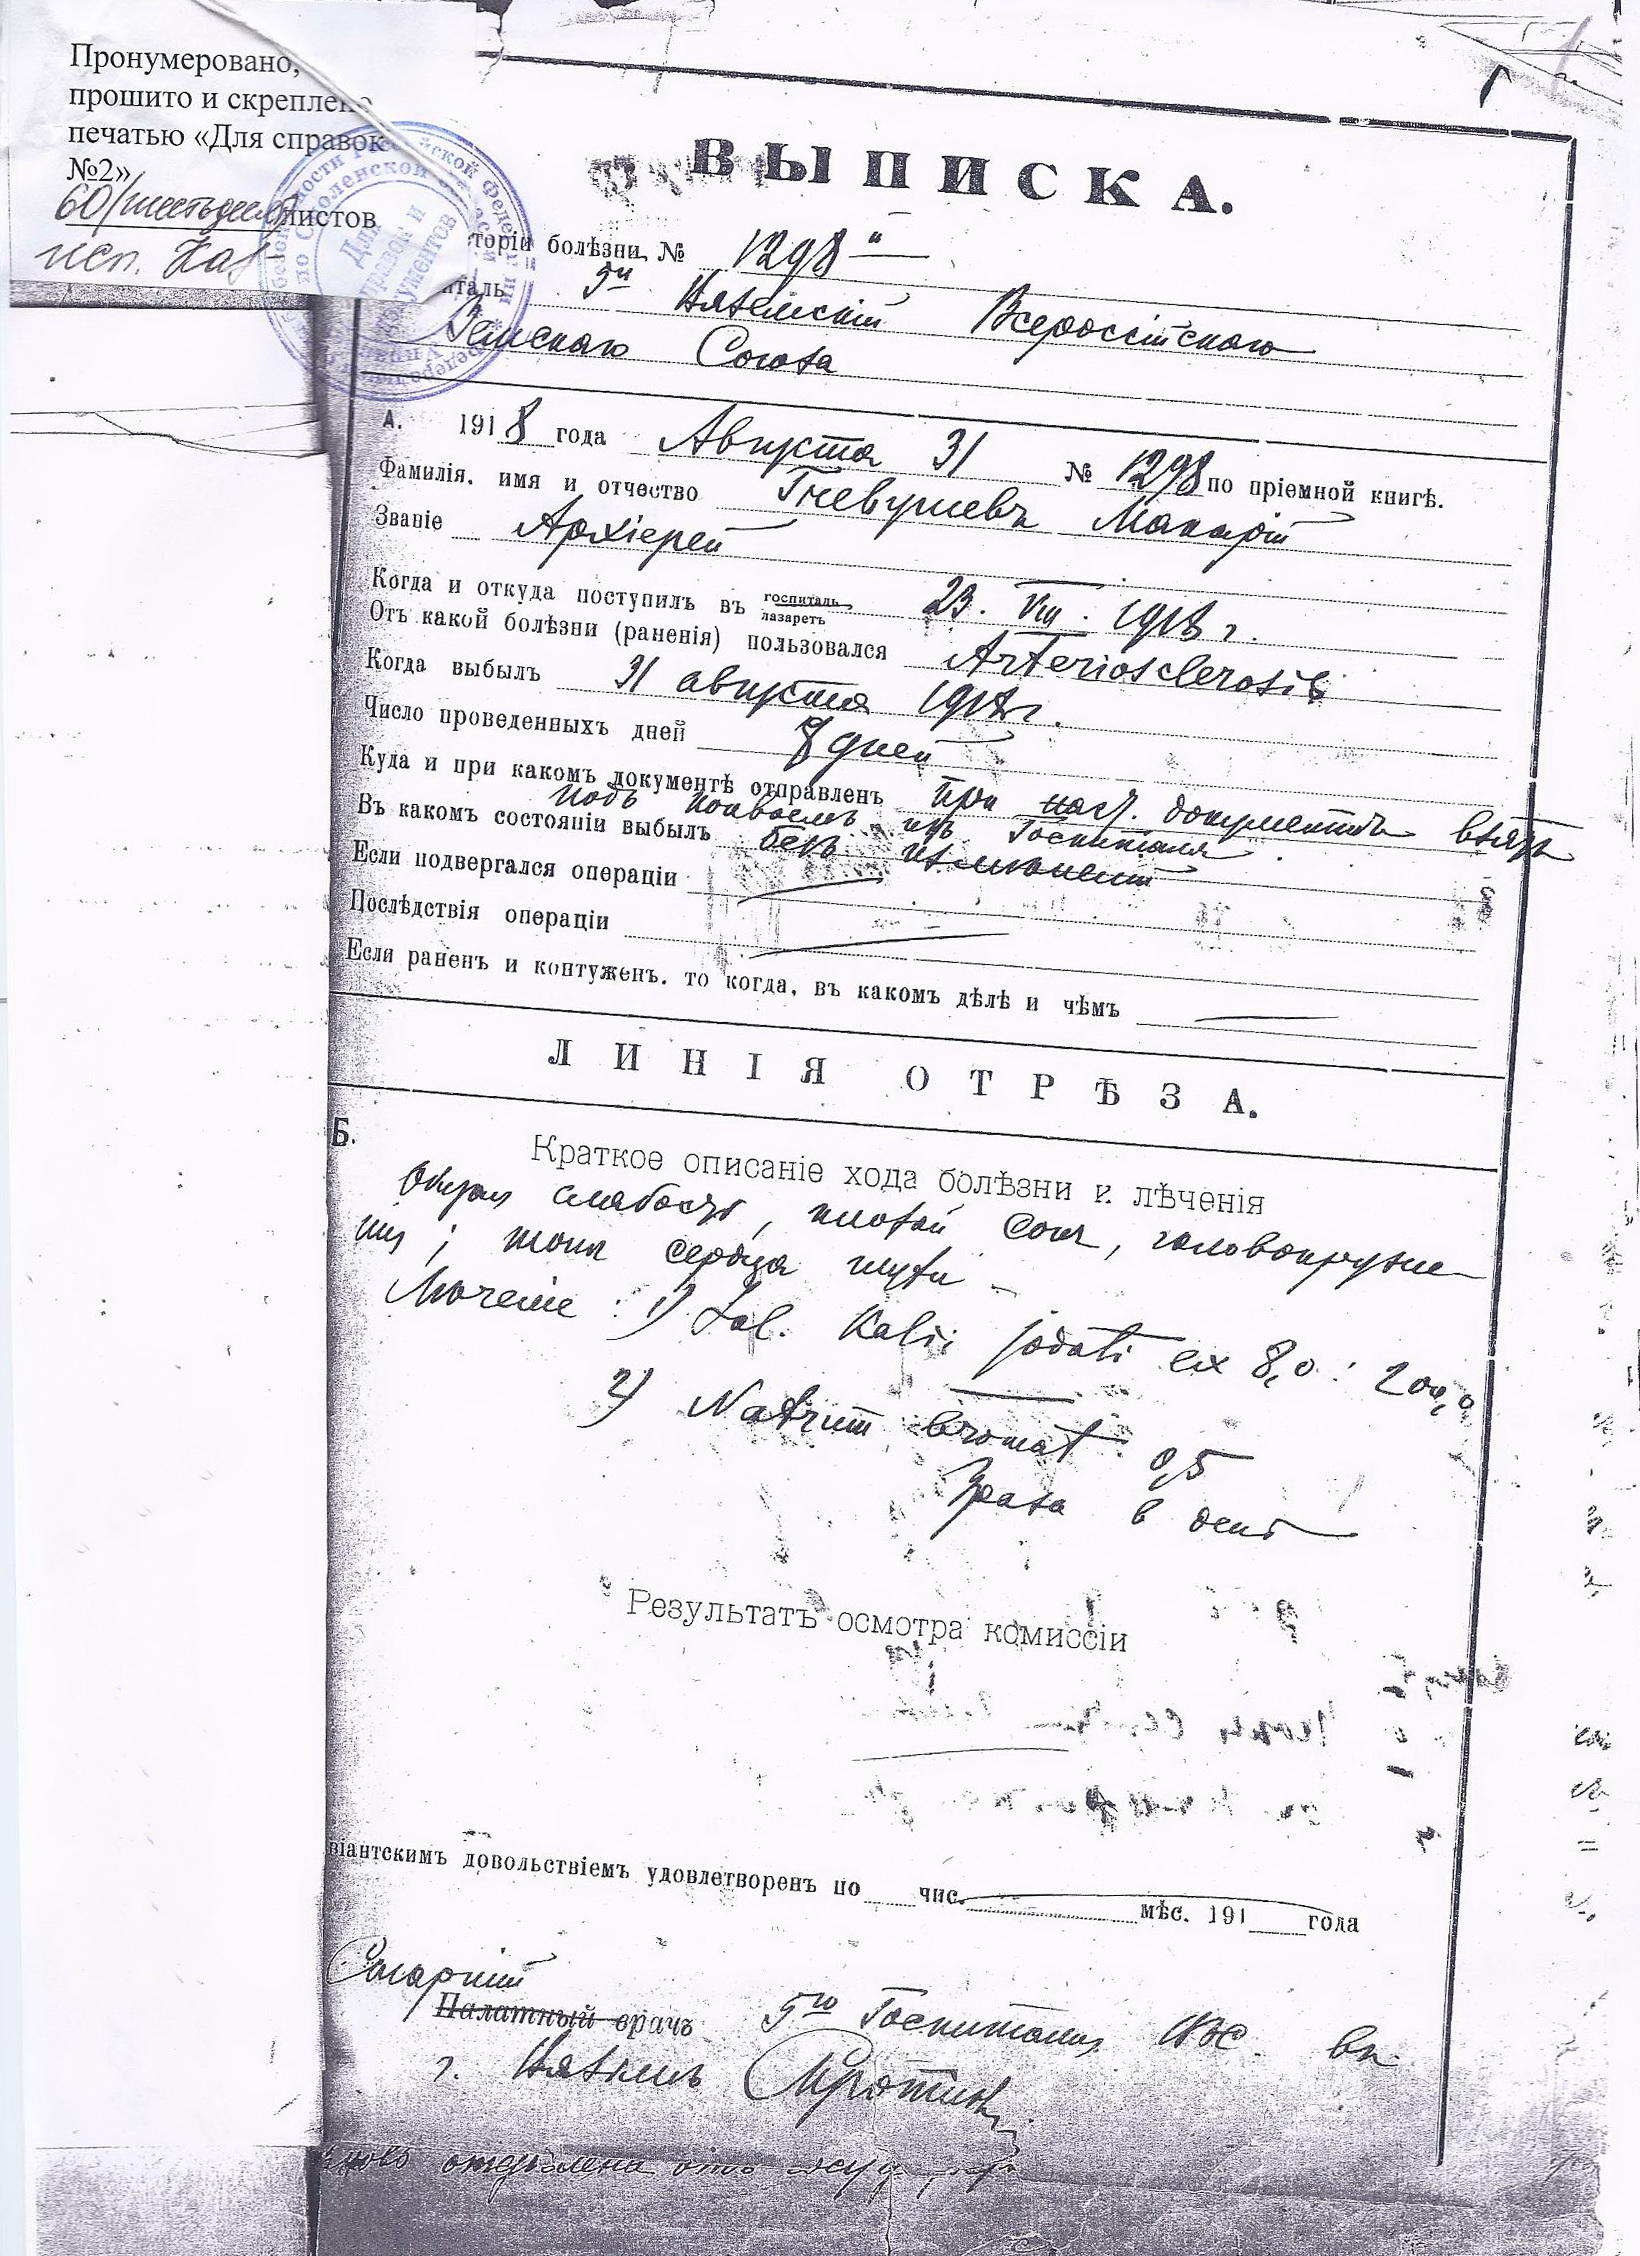 Пронумеровано,
прошито и скреплено
печатью «Для справок
№2»
60/шестьдесят листов
исп.
ВЫПИСКА.
торіи болѣзни № 1298
италь 5й Вяземскій Всероссійскаго
Земскаго Союза
А. 1918 года Августа 31 № 1298 по пріемной книгѣ.
Фамилія, имя и отчество Гневушевъ Макарій
Званіе Архіерей
Когда и откуда поступилъ въ госпиталь лазаретъ 23. VIII. 1918 г.
Отъ какой болѣзни (раненія) пользовался Arteriosclerosis
Когда выбылъ 31 августа 1918 г.
Число проведенныхъ дней 8 дней
Куда и при какомъ документѣ отправленъ При наст. документѣ взятъ
подъ конвоемъ изъ Госпиталя
Въ какомъ состояніи выбылъ безъ измѣненій
Если подвергался операціи
Послѣдствія операціи
Если раненъ и контуженъ, то когда, въ какомъ дѣлѣ и чѣмъ
ЛИНІЯ ОТРѢЗА.
Б.
Краткое описаніе хода болѣзни и лѣченія
Общая слабость, плохой сон, головокруже-
ния; тоны сердца глухи
Лѣченіе: 1) Sol. Kalii jodati ex 8,0 : 200,0
2) Natrum bromat. 0,5
3 раза в день
Результатъ осмотра комиссіи
віантскимъ довольствіемъ удовлетворенъ по чис. мѣс. 191 года
Старшій
Палатный врачъ 5го Госпиталя ВЗС. въ
г. Вязьмѣ